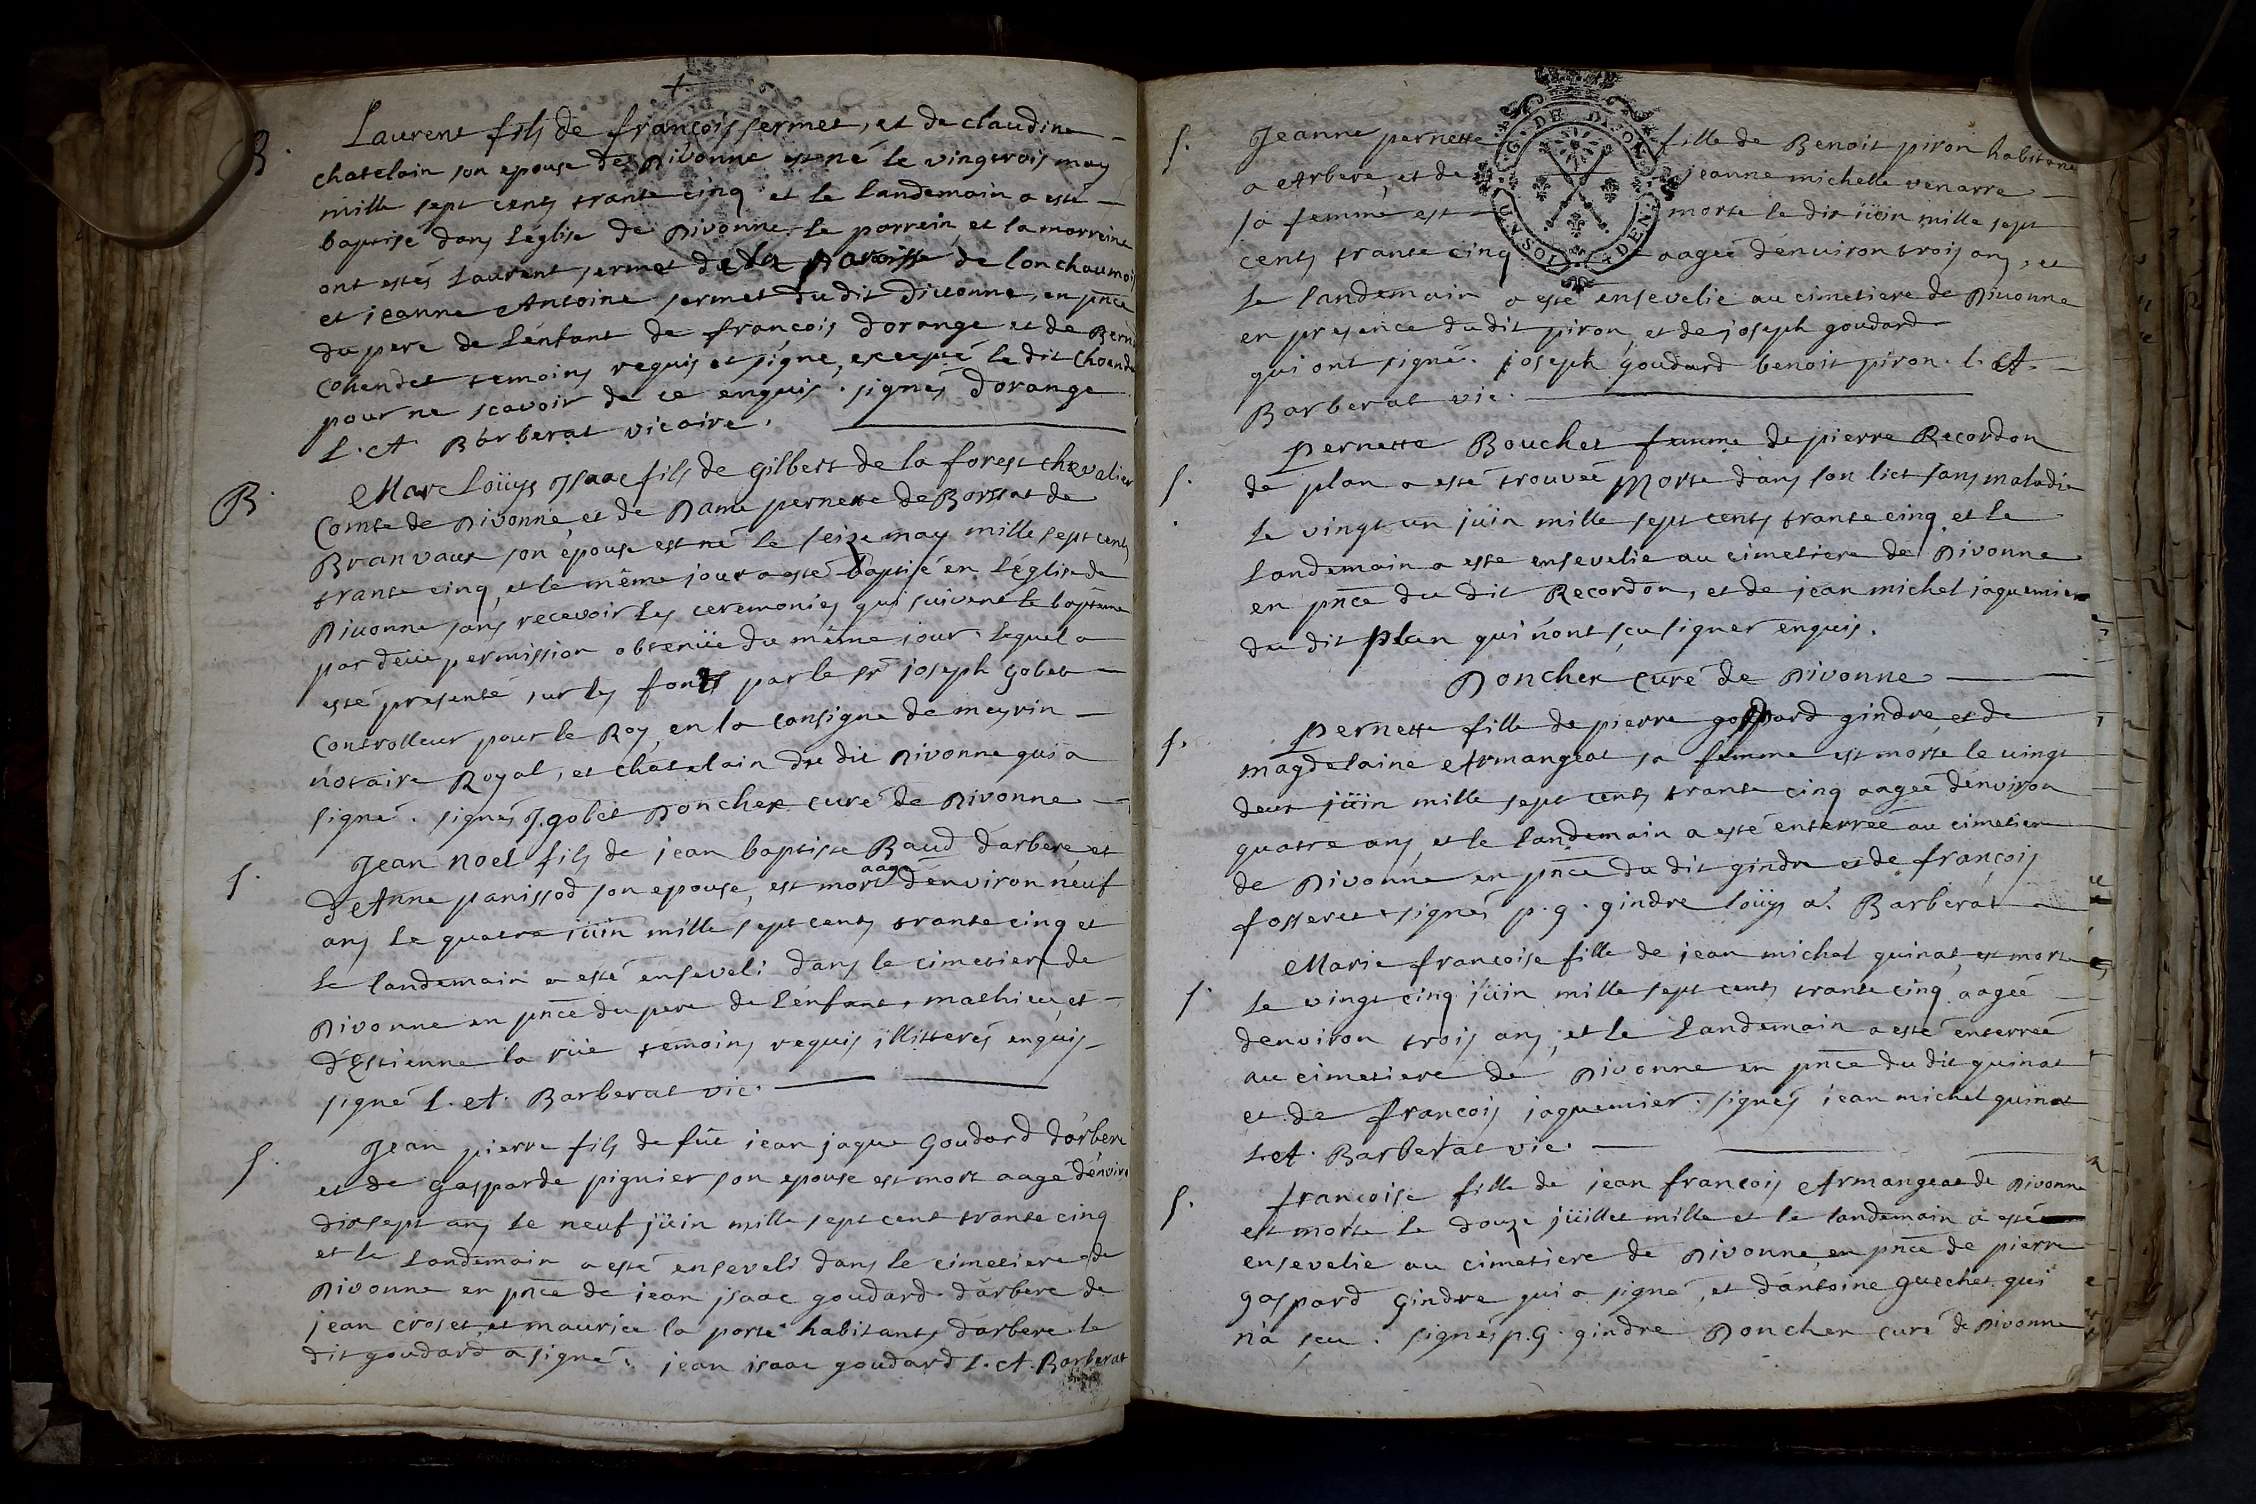 B.
Laurent fils de françois sermet, et de claudine
chatelain son epouse de Divonne est né le vingtrois may
mille sept cents trante cinq et le landemain a esté
baptisé dans l'église de Divonne. le parrein, et la marreine
ont estés Laurent sermet de la Paroisse de lonchaumois
et jeanne Antoine sermet du dit divonne, en pnce
du pere de l'énfant de françois dorange et de Bern
Cohendet temoins requis et signe, excepté le dit Choendet
pour ne scavoir de ce enquis. signés dorange
L. A Barberat vicaire.
B.
Marc Loüys Isaac fils de Gilbert de la forest chevalier
Comte de Divonne et de Dame pernette de Borssat de
Branvaux son épouse est né le seize may mille sept cents
trante cinq, et le même jour a esté baptisé en L'église de
Divonne sans recevoir les ceremonies qui suivent le baptême
par deüe permission obtenüe du même jour. lequel a
esté presenté sur les fonts par le sr joseph Gobet
Controlleur pour le Roy en la consigne de meyrin
notaire Royal, et châtelain du dit Divonne qui a
signé. signés J. gobet Doncher curé de Divonne
S.
Jean noel fils de jean baptiste Baud d'arbere, et
d'Anne panissod son epouse, est mort aagé d'énviron neuf
ans le quatre jüin mille sept cents trante cinq et
le landemain a esté enseveli dans le cimetiere de
Divonne en pnce du pere de l'énfant, mathieu, et
d'Estienne la rüe temoins requis illitterés enquis
signé L. A. Barberat vic.
S.
Jean pierre fils de füe jean jaque Goudard d'arbere
et de Gasparde pignier son epouse est mort aagé d'énviro
dixsept ans le neuf jüin mille sept cent trante cinq
et le landemain a esté enseveli dans le cimetiere de
Divonne en pnce de jean jsaac goudard d'arbere de
jean croset, et maurice la porte habitants d'arbere. le
dit goudard a signé. jean isaac goudard L. A. Barberat
S.
Jeanne pernette fille de Benoit piron habitant
a Arbere, et de jeanne michelle venarre
sa femme est morte le dix jüin mille sept
cents trante cinq aageé d'énviron trois ans, et
le landemain a esté ensevelie au cimetiere de Divonne
en presence du dit piron, et de joseph goudard
qui ont signé. joseph goudard benoit piron. l. A.
Barberat vic.
S.
pernette Bouchet femme de pierre Recordon
de plan a esté trouveé morte dans son lict sans maladie
le vingt un jüin mille sept cents trante cinq, et le
landemain a esté ensevelie au cimetiere de Divonne
en pnce du dit Recordon, et de jean michel jaquemier
du dit plan qui n'ont sçu signer enquis.
Doncher curé de Divonne
S.
pernette fille de pierre gaspard gindre, et de
magdelaine Armangeat sa femme est morte le vingt
deux jüin mille sept cents trante cinq aageé d'énviron
quatre ans, et le landemain a esté enterreé au cimetiere
de Divonne en pnce du dit gindre et de françois
fosseret. signés p. g. gindre loüys a. Barberat
S.
Marie francoise fille de jean michel quinat, est morte
le vingt cinq jüin mille sept cents trante cinq aageé
denviron trois ans, et le landemain a esté enterreé
au cimetiere de Divonne en pnce du dit quinat
et de francois jaquemier. signés jean michel quinat
L. A. Barberat vic.
S.
francoise fille de jean francois Armangeat de Divonne
est morte le douze jüillet mille et le landemain a esté
ensevelie au cimetiere de Divonne, en pnce de pierre
gaspard Gindre qui a signé, et d'antoine guechet qui
n'a sçu. signés p. G. gindre Doncher curé de Divonne
G. DE DIJON